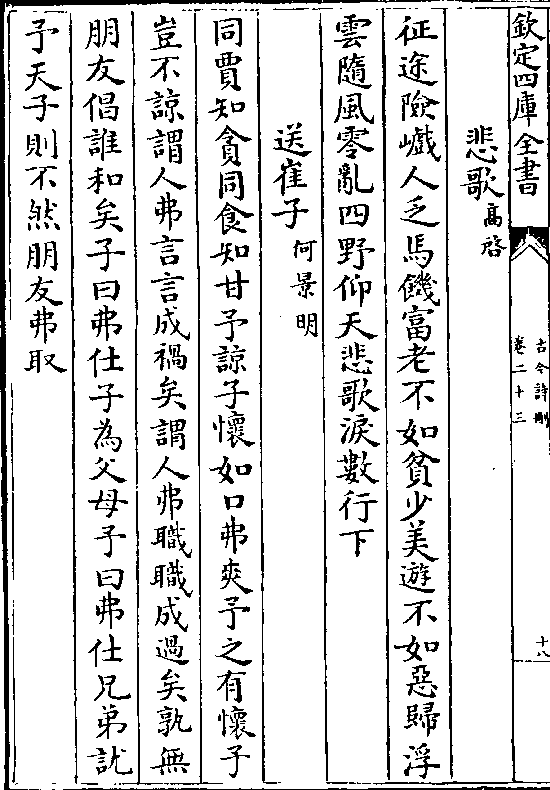 欽定四庫全書
古今詩刪
卷二十三
十八
悲歌 高啓
征途險巇人乏馬饑富老不如貧少美遊不如惡歸浮
雲隨風零亂四野仰天悲歌淚數行下
送崔子 何景明
同賈知貪同食知甘予諒子懷如口弗爽予之有懷子
豈不諒謂人弗言言成禍矣謂人弗職職成過矣孰無
朋友倡誰和矣子曰弗仕子為父母子曰弗仕兄弟訧
予天子則不然朋友弗取